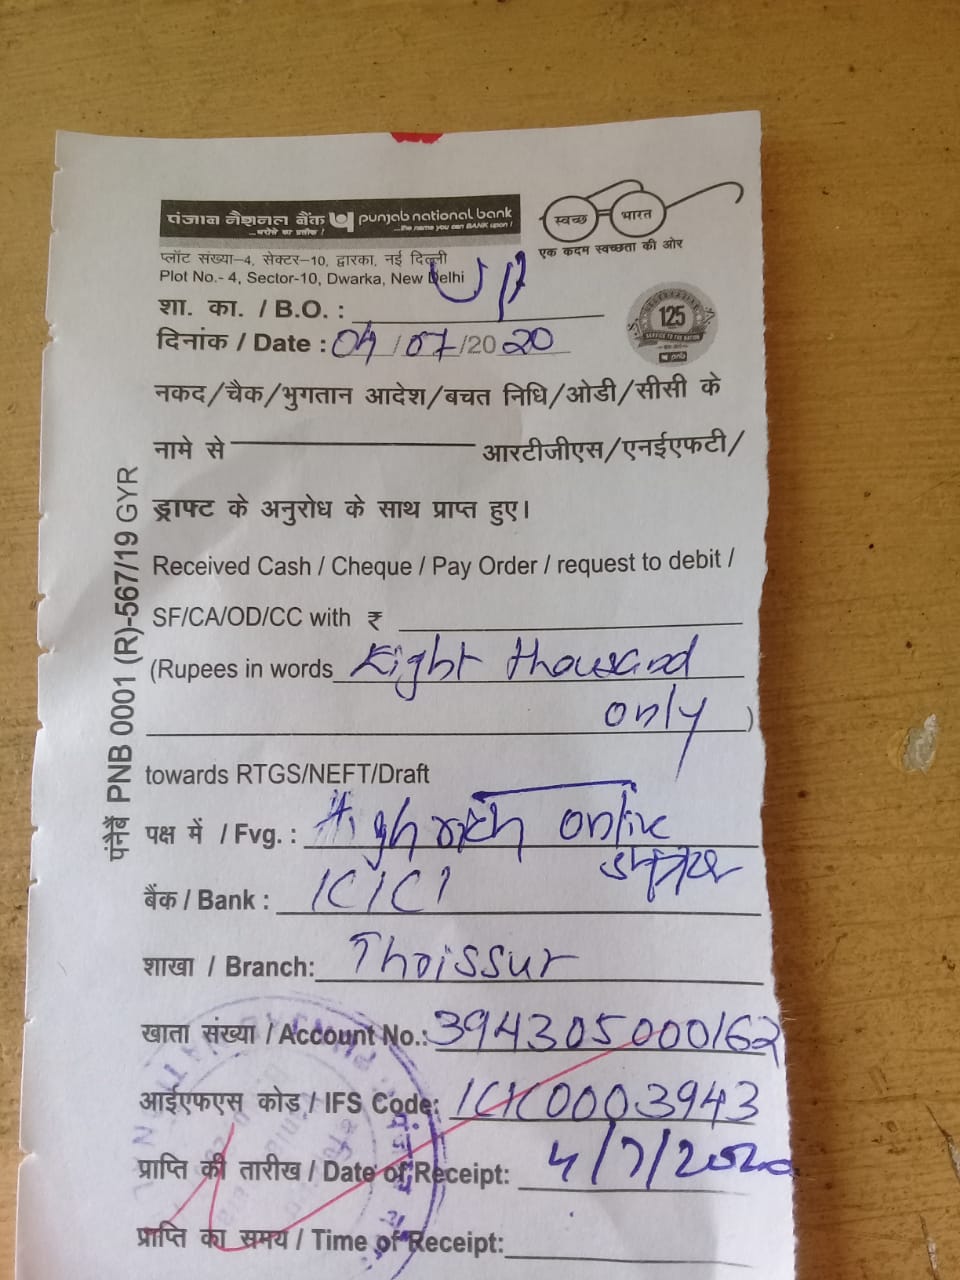 पंजाब नैशनल बैंक punjab national bank
...भरोसे का प्रतीक ! ...the name you can BANK upon !
स्वच्छ भारत
एक कदम स्वच्छता की ओर
प्लॉट संख्या–4, सेक्टर–10, द्वारका, नई दिल्ली
Plot No.- 4, Sector-10, Dwarka, New Delhi
शा. का. / B.O. :
125
SERVICE TO THE NATION
pnb
दिनांक / Date : 04/07/2020
नकद/चैक/भुगतान आदेश/बचत निधि/ओडी/सीसी के
नामे से आरटीजीएस/एनईएफटी/
ड्राफ्ट के अनुरोध के साथ प्राप्त हुए।
Received Cash / Cheque / Pay Order / request to debit /
SF/CA/OD/CC with ₹
(Rupees in words Eight thousand
only )
towards RTGS/NEFT/Draft
पक्ष में / Fvg. : High rich online
बैंक / Bank : ICICI
शाखा / Branch: Thrissur
खाता संख्या / Account No.: 394305000162
आईएफएस कोड / IFS Code: ICIC0003943
प्राप्ति की तारीख / Date of Receipt: 4/7/2020
प्राप्ति का समय / Time of Receipt:
पंनैबैं PNB 0001 (R)-567/19 GYR